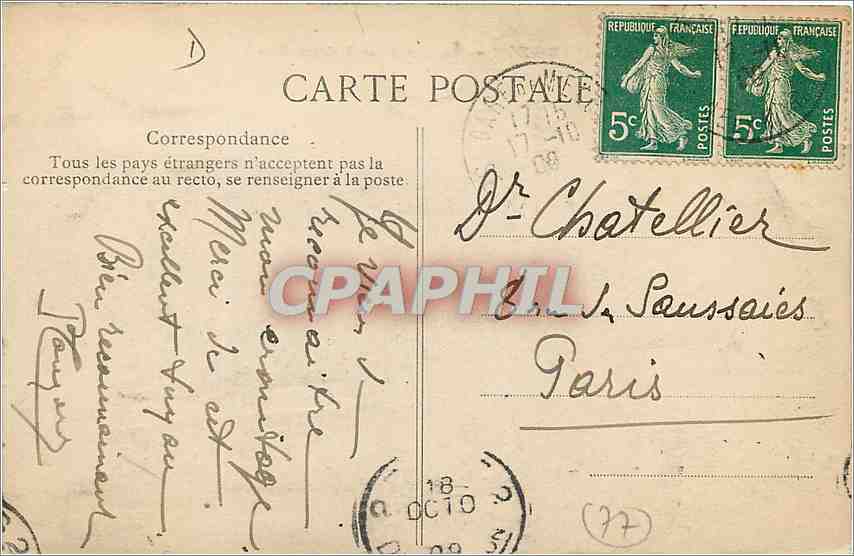 D
CARTE POSTALE
REPUBLIQUE FRANÇAISE
5c
POSTES
REPUBLIQUE FRANÇAISE
5c
POSTES
17 15
17 -10
09
Correspondance
Tous les pays étrangers n'acceptent pas la
correspondance au recto, se renseigner à la poste.
Je viens de
reconnaître
mon ermitage
Merci de cet
excellent tuyau
Bien reconnaissant
Dr Chatellier
Saussaies
Paris
CPAPHIL
18-
OCTO
09
(77)